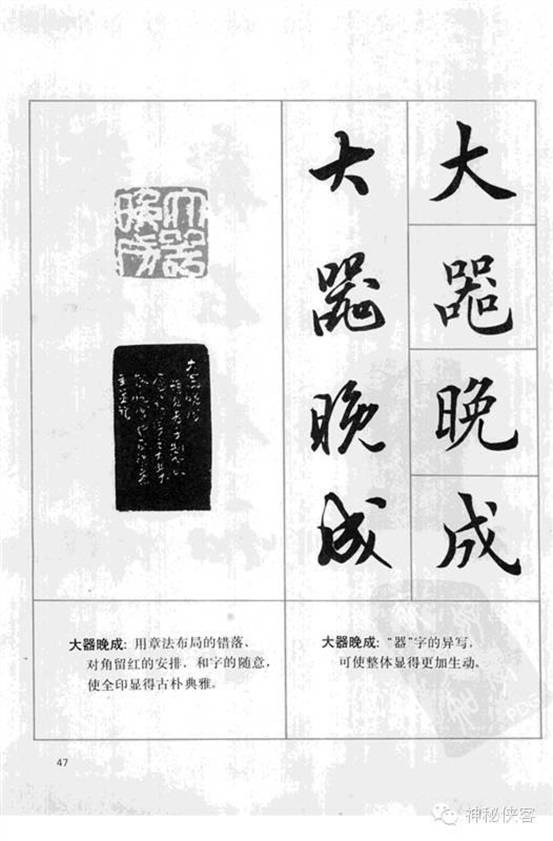 大器晚成
大器晚成
大器晚成
大器晚成：用章法布局的错落、
对角留红的安排，和字的随意，
使全印显得古朴典雅。
大器晚成：“器”字的异写，
可使整体显得更加生动。
47
神秘侠客